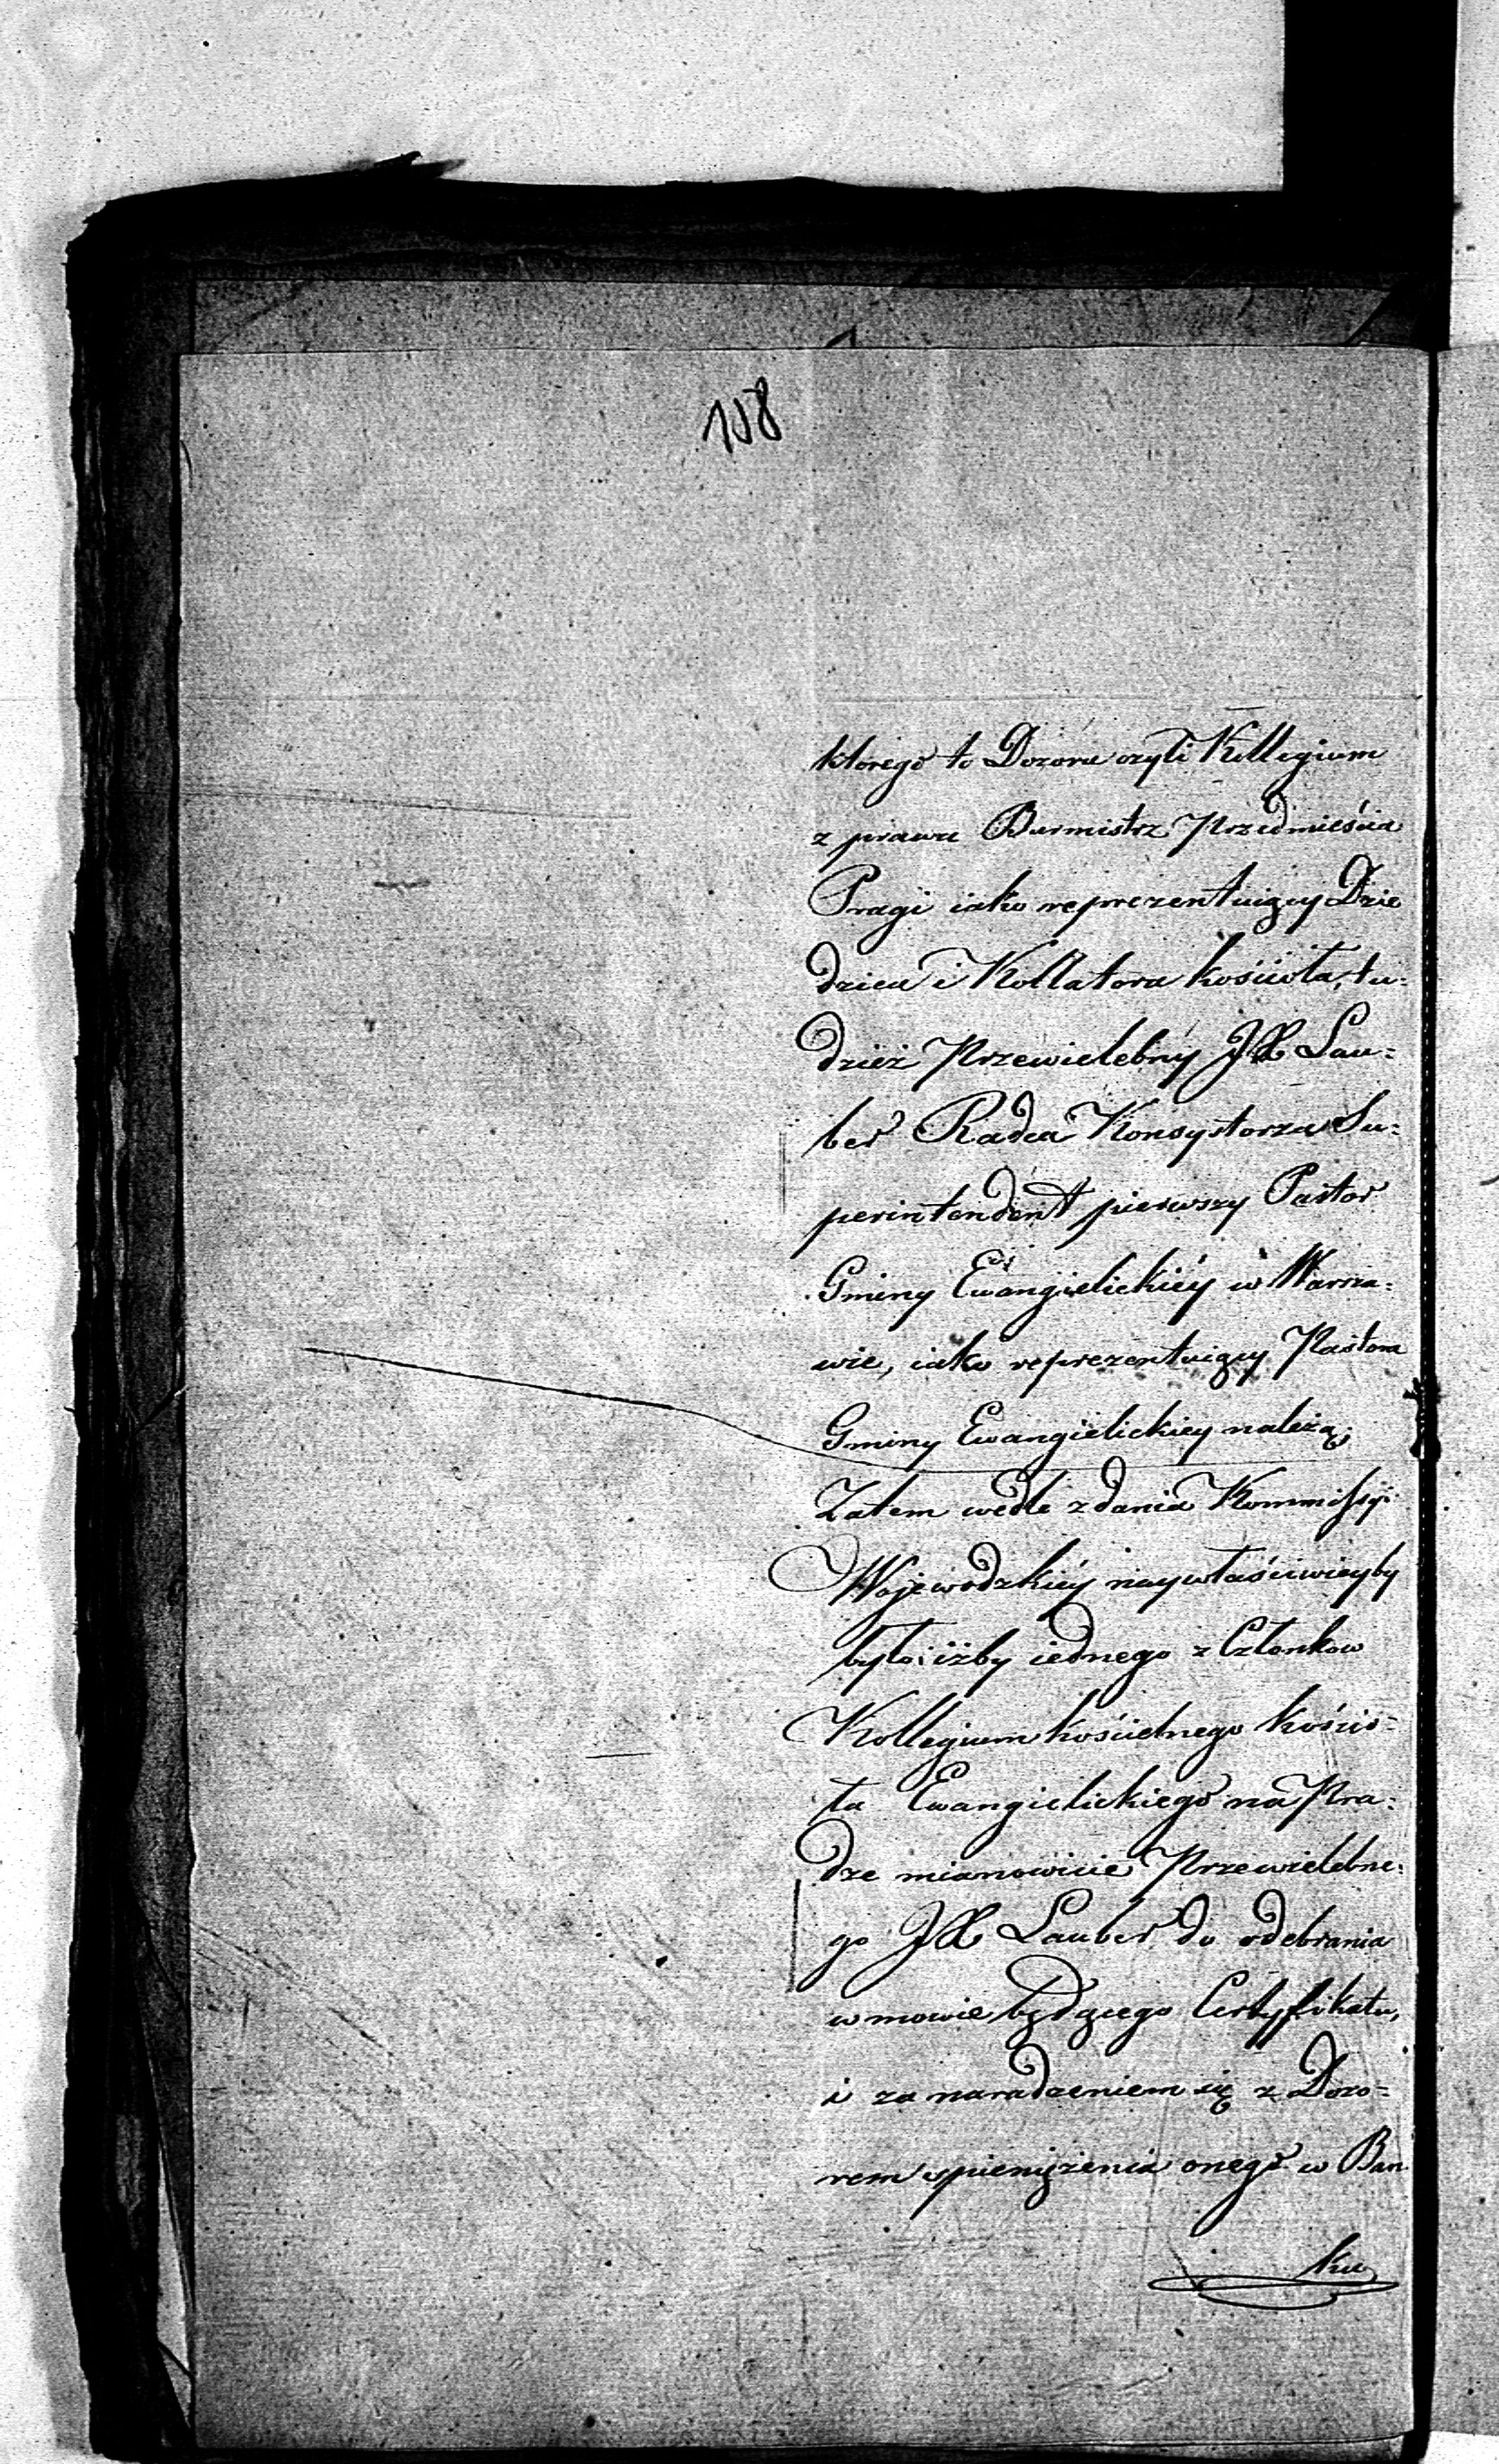 108
ktorego to Dozoru czyli Kollegium
z prawa Burmistrz Przedmieścia
Pragi iako reprezentuiący Dzie
dzica i Kollatora kościoła, tu=
dzież Przewielebny JX Lau=
ber Radca Konsystorza Su=
perintendent pierwszy Pastor
Gminy Ewangielickiéy w Warsza=
wie, iako reprezentuiący Pastora
Gminy Ewangielickiey należą;
Zatem wedle zdania Kommissyi
Wojewodzkiéy naywłaściwieyby
było iżby iednego z Członkow
Kollegium kościelnego kościo=
ła Ewangielickiego na Pra=
dze mianowicie Przewielebne=
go JX Lauber do odebrania
w mowie będącego Certyfikatu,
i za naradzeniem się z Dozo=
rem spieniężenia onego w Ban
ku